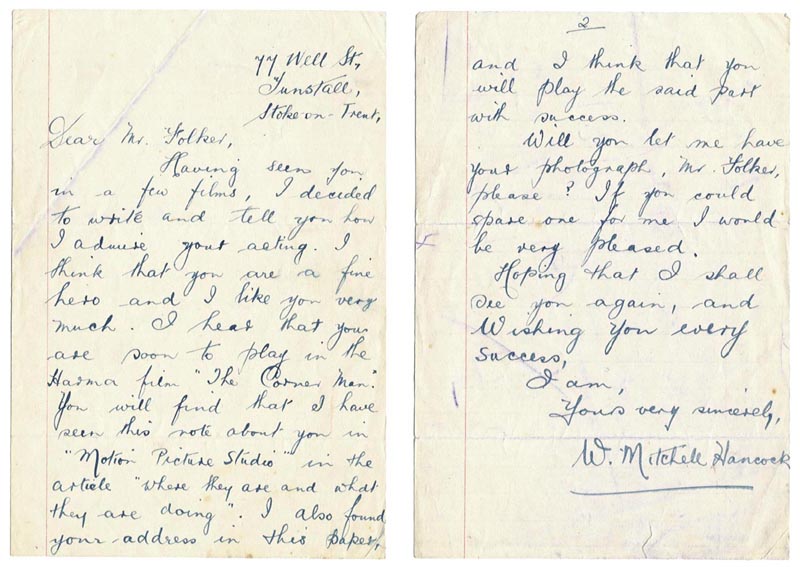 77 Well St,
Tunstall,
Stoke-on-Trent,
Dear Mr. Folker,
Having seen you
in a few films, I decided
to write and tell you how
I admire your acting. I
think that you are a fine
hero and I like you very
much. I hear that you
are soon to play in the
Harma film "The Corner Man".
You will find that I have
seen this note about you in
"Motion Picture Studio" in the
article "where they are and what
they are doing". I also found
your address in this paper,
2
and I think that you
will play the said part
with success.
Will you let me have
your photograph, Mr. Folker,
please? If you could
spare one for me I would
be very pleased.
Hoping that I shall
see you again, and
Wishing you every
success,
I am,
Yours very sincerely,
W. Mitchell Hancock